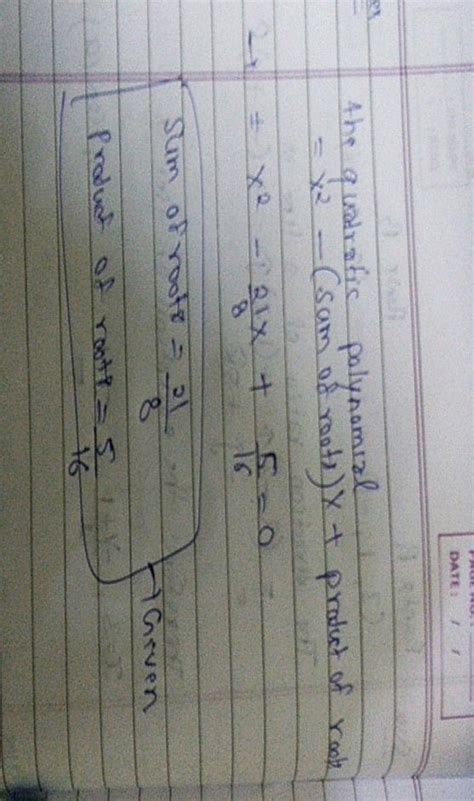 the quadratic polynomial
= x² - (sum of roots) x + product of root
= x² - 21x/8 + 5/16 = 0
Sum of roots = 21/8
product of roots = 5/16
→ Given
DATE: / /